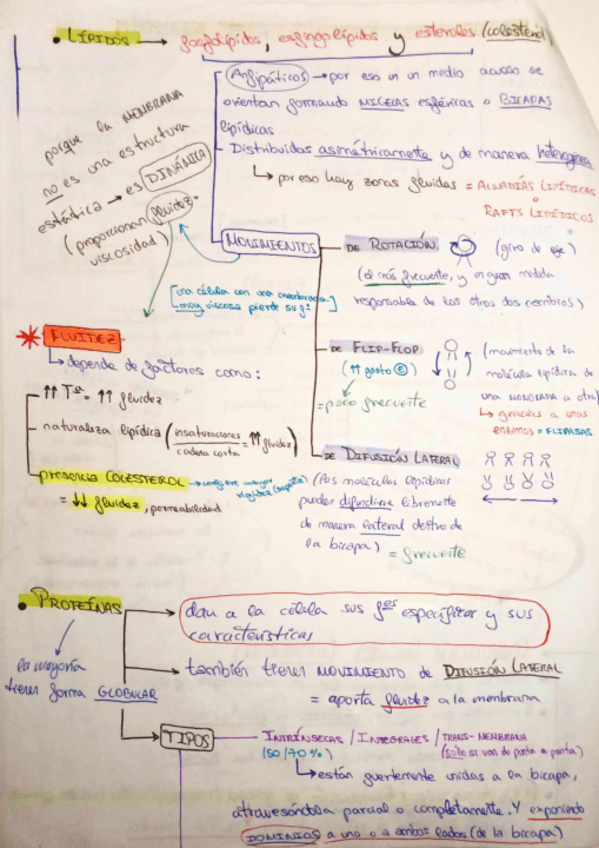 • LÍPIDOS → fosfolípidos, esfingolípidos y esteroles (colesterol)
Anfipáticos → por eso en un medio acuoso se
orientan formando MICELAS esféricas o BICAPAS
lipídicas
Distribuidos asimétricamente y de manera heterogénea
↳ por eso hay zonas fluidas = ALMADÍAS LIPÍDICAS
o
RAFTS LIPÍDICOS
porque la MEMBRANA
no es una estructura
estática → es DINÁMICA
(proporcionan fluidez
viscosidad)
MOVIMIENTOS
DE ROTACIÓN (giro de eje)
(el más frecuente, y en gran medida
responsable de los otros dos cambios)
[una célula con una membrana
muy viscosa pierde su fº]
DE FLIP-FLOP (movimiento de la
molécula lipídica de
una MONOCAPA a otra)
↳ gracias a unas
enzimas = FLIPASAS
(↑↑ gasto E)
= poco frecuente
DE DIFUSIÓN LATERAL
(las moléculas lipídicas
pueden difundirse libremente
de manera lateral dentro de
la bicapa)
= frecuente
FLUIDEZ
↳ depende de factores como:
↑↑ Tª = ↑↑ fluidez
naturaleza lipídica (insaturaciones / cadena corta = ↑↑ fluidez)
presencia COLESTEROL → confiere mayor
rigidez
= ↓↓ fluidez, permeabilidad
• PROTEÍNAS
dan a la célula sus fes específicas y sus
características
la mayoría
tienen forma GLOBULAR
también tienen MOVIMIENTO de DIFUSIÓN LATERAL
= aporta fluidez a la membrana
TIPOS
INTRÍNSECAS / INTEGRALES / TRANS-MEMBRANA
(50/70%) (sólo si van de punta a punta)
↳ están fuertemente unidas a la bicapa,
atravesándola parcial o completamente. Y exponiendo
DOMINIOS a uno o a ambos lados (de la bicapa)